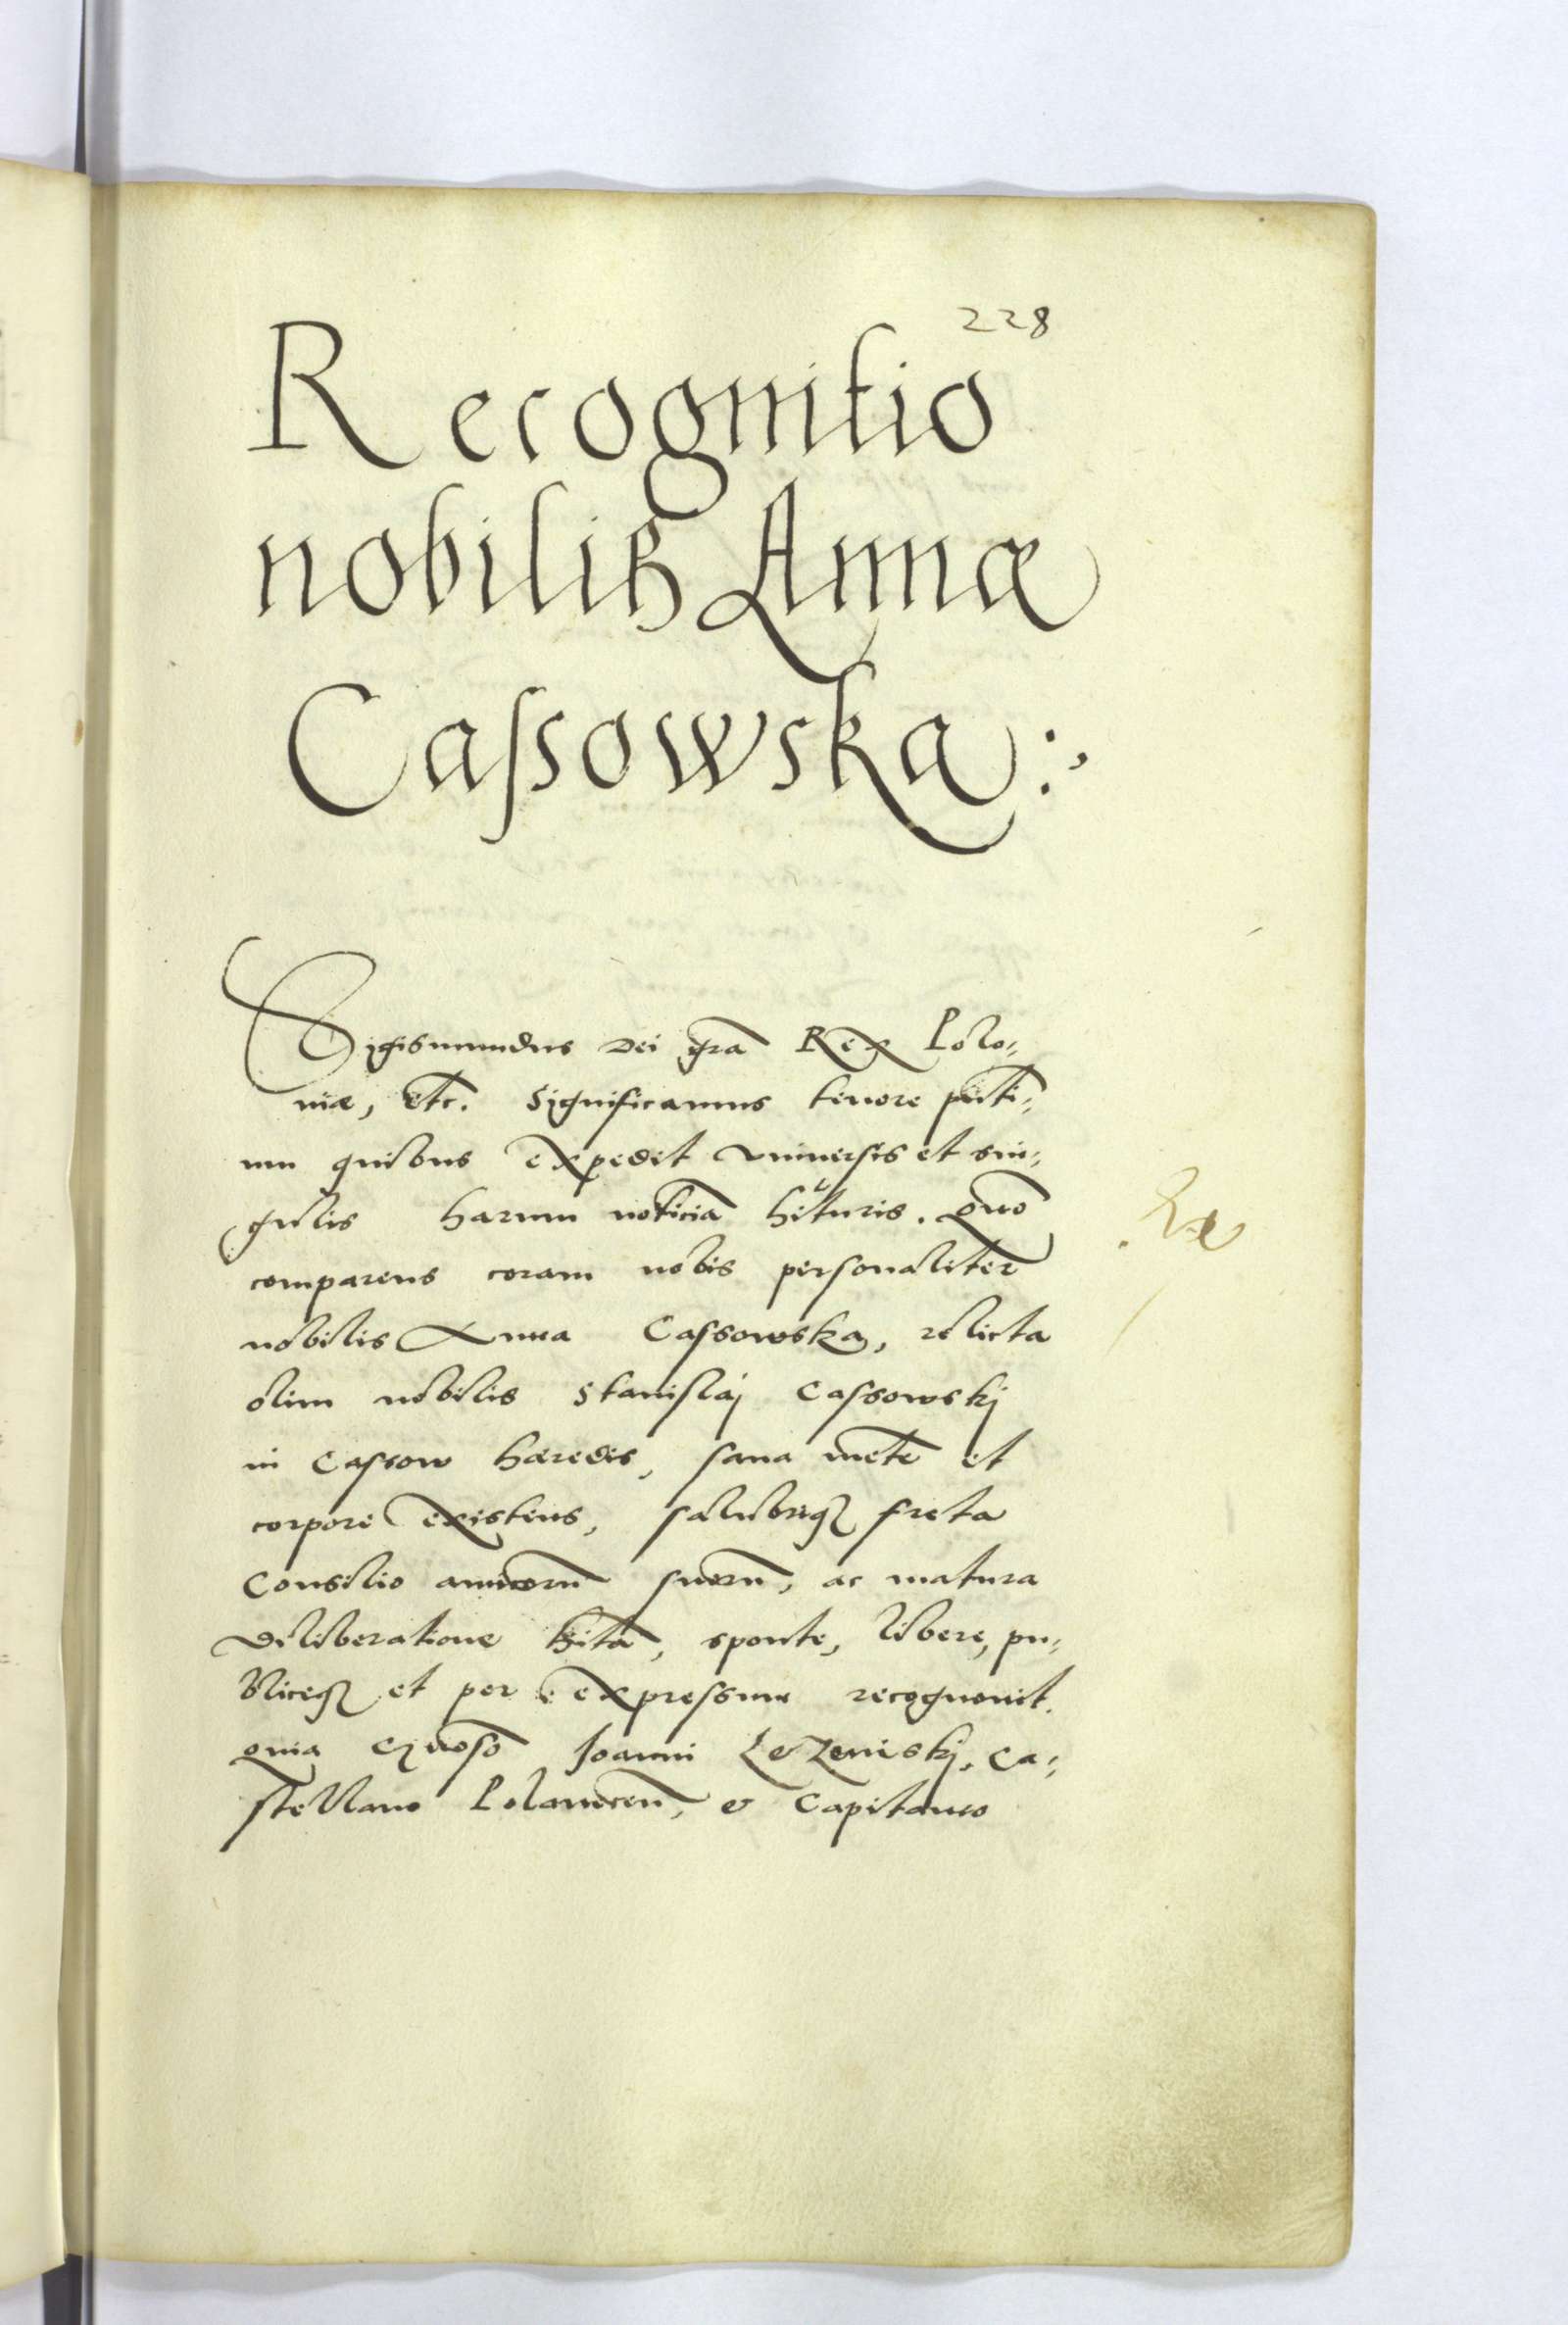 228
Recognitio
nobilis Annæ
Cassowska :,
Sigismundus Dei gra Rex Polo-
niæ, etc. Significamus tenore pñti-
um quibus expedit vniuersis et sin-
gulis harum noticia hituris. Quo
comparens coram nobis personaliter
nobilis Anna Cassowska, relicta
olim nobilis Stanislaj Cassowskj
in Cassow hæredis, sana mete et
corpore existens, salubriq freta
Consilio amicoru suoru, ac matura
deliberatione hita, sponte, libere, pu-
bliceq et per expressum recognouit.
quia Gnoso Joanni Lezenskj, Ca-
stellano Polanecen, & Capitaneo